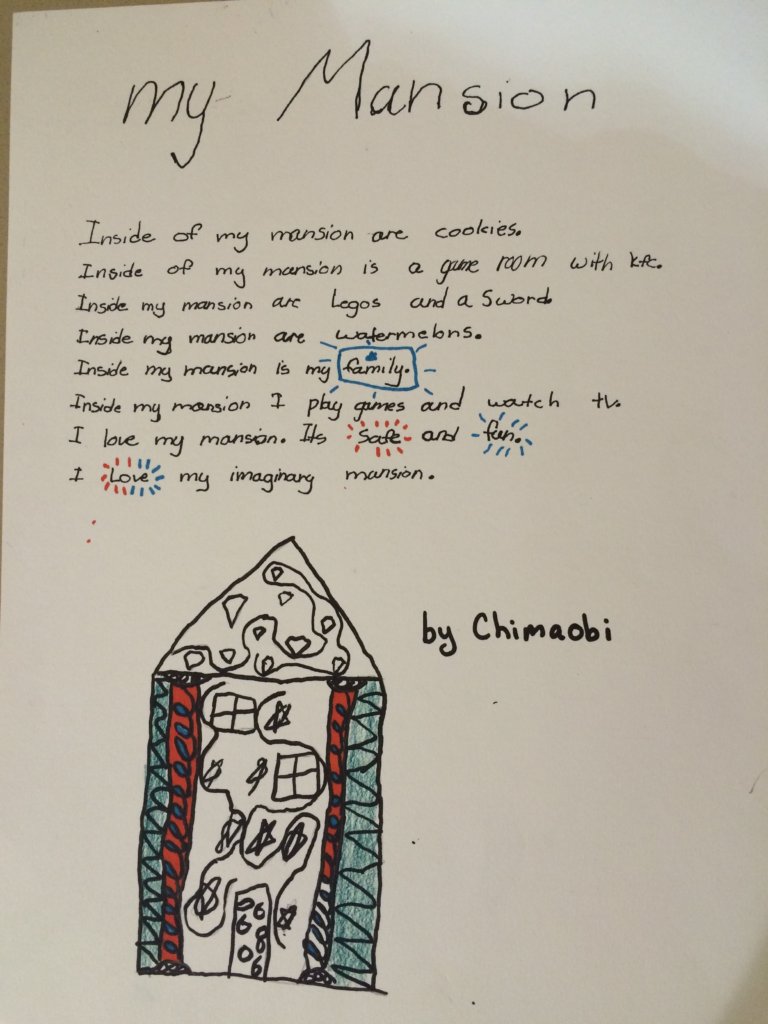 my Mansion
Inside of my mansion are cookies.
Inside of my mansion is a game room with kfc.
Inside my mansion are Legos and a Sword.
Inside my mansion are watermelons.
Inside my mansion is my family.
Inside my mansion I play games and watch tv.
I love my mansion. Its Safe and fun.
I Love my imaginary mansion.
by Chimaobi